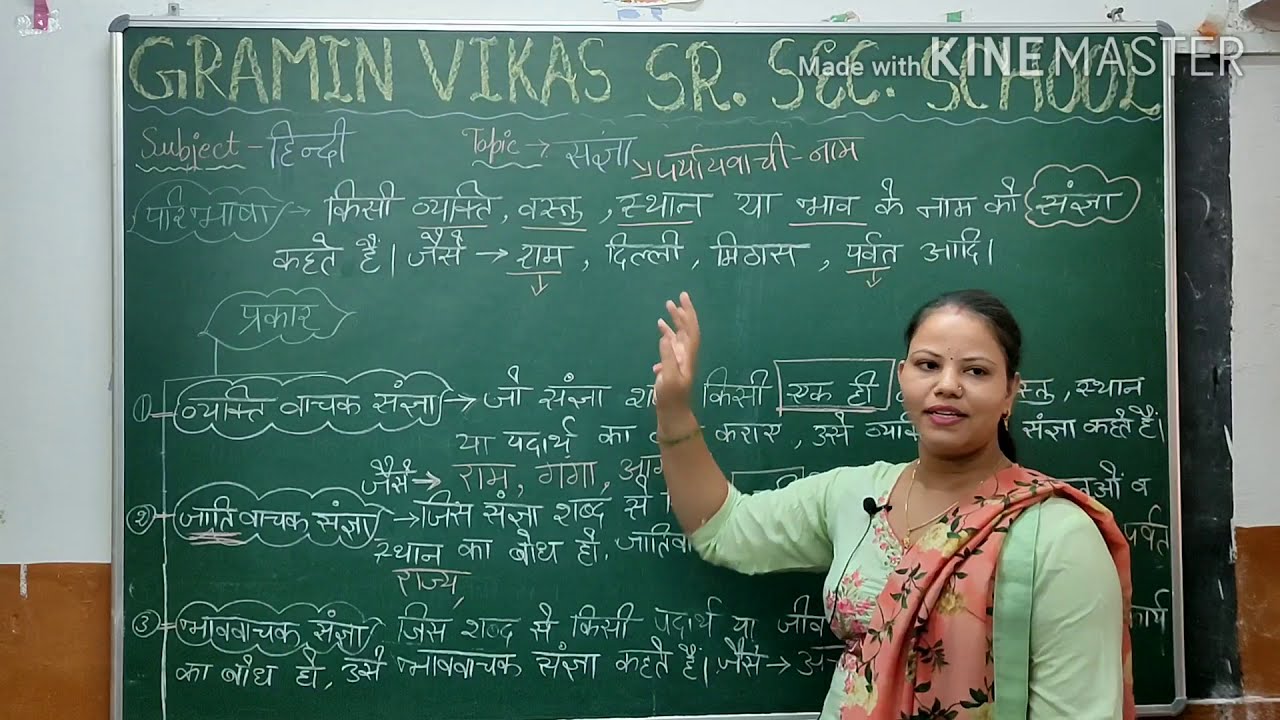 GRAMIN VIKAS SR. SEC. SCHOOL
Made with KINEMASTER
Subject - हिन्दी Topic → संज्ञा
→ पर्यायवाची - नाम
परिभाषा → किसी व्यक्ति, वस्तु, स्थान या भाव के नाम को संज्ञा
कहते हैं। जैसे → राम, दिल्ली, मिठास, पर्वत आदि।
प्रकार
① व्यक्ति वाचक संज्ञा → जो संज्ञा किसी एक ही स्थान
या पदार्थ का कराए, उसे संज्ञा कहते हैं।
जैसे → राम, गंगा,
② जाति वाचक संज्ञा → जिस संज्ञा शब्द से व
स्थान का बोध हो, पर्वत
राज्य,
③ भाववाचक संज्ञा जिस शब्द से किसी पदार्थ या कार्य
का बोध हो, उसे भाववाचक संज्ञा कहते हैं। जैसे →